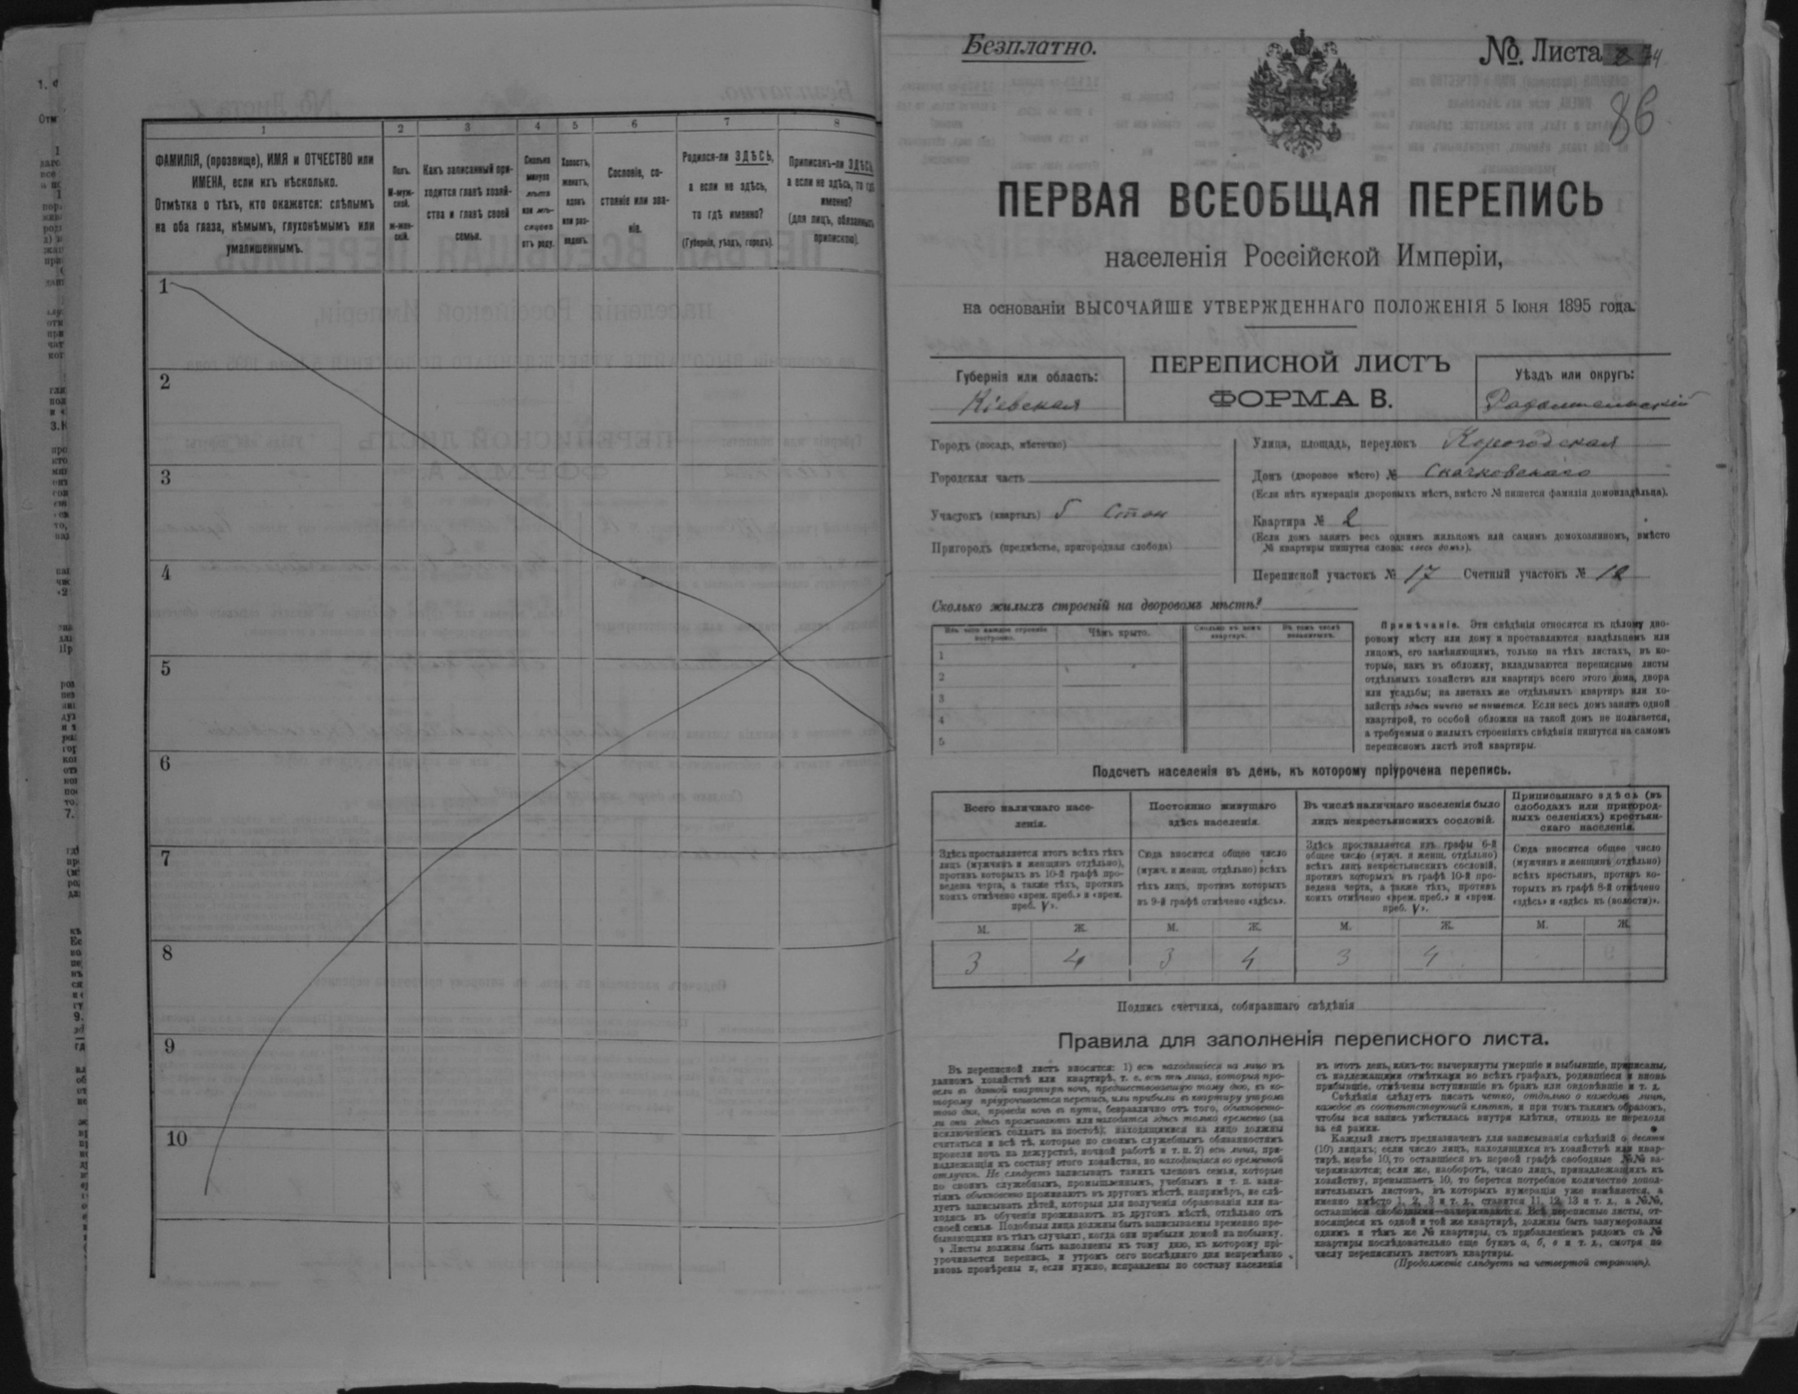 1 2 3 4 5 6 7 8
ФАМИЛІЯ, (прозвище), ИМЯ и ОТЧЕСТВО или
ИМЕНА, если ихъ нѣсколько.
Отмѣтка о тѣхъ, кто окажется: слѣпымъ
на оба глаза, нѣмымъ, глухонѣмымъ или
умалишеннымъ.
Полъ.
М-муж-
ской.
Ж-жен-
скій.
Какъ записанный при-
ходится главѣ хозяй-
ства и главѣ своей
семьи.
Сколько
минуло
лѣтъ
или мѣ-
сяцевъ
отъ роду.
Холостъ,
женатъ,
вдовъ
или раз-
веденъ.
Сословіе, со-
стояніе или зва-
ніе.
Родился-ли ЗДѢСЬ,
а если не здѣсь,
то гдѣ именно?
(Губернія, уѣздъ, городъ).
Приписанъ-ли ЗДѢСЬ,
а если не здѣсь, то гдѣ
именно?
(для лицъ, обязанныхъ
припискою).
1
2
3
4
5
6
7
8
9
10
Безплатно.
№. Листа
86
ПЕРВАЯ ВСЕОБЩАЯ ПЕРЕПИСЬ
населенія Россійской Имперіи,
на основаніи ВЫСОЧАЙШЕ УТВЕРЖДЕННАГО ПОЛОЖЕНІЯ 5 Іюня 1895 года.
Губернія или область:
Кіевская
ПЕРЕПИСНОЙ ЛИСТЪ
ФОРМА В.
Уѣздъ или округъ:
Радомысльскій
Городъ (посадъ, мѣстечко)
Городская часть
Участокъ (кварталъ) 5 Стан
Пригородъ (предмѣстье, пригородная слобода)
Улица, площадь, переулокъ Корогодская
Домъ (дворовое мѣсто) № Скачковскаго
(Если нѣтъ нумераціи дворовыхъ мѣстъ, вмѣсто № пишется фамилія домовладѣльца).
Квартира № 2
(Если домъ занятъ весь однимъ жильцомъ или самимъ домохозяиномъ, вмѣсто
№ квартиры пишутся слова: «весь домъ»).
Переписной участокъ № 17 Счетный участокъ № 12
Сколько жилыхъ строеній на дворовомъ мѣстѣ?
Изъ чего каждое строеніе
построено.
Чѣмъ крыто.
Сколько въ немъ
квартиръ.
Въ томъ числѣ
незанятыхъ.
1
2
3
4
5
Примѣчаніе. Эти свѣдѣнія относятся къ цѣлому дво-
ровому мѣсту или дому и проставляются владѣльцемъ или
лицомъ, его замѣняющимъ, только на тѣхъ листахъ, въ ко-
торые, какъ въ обложку, вкладываются переписные листы
отдѣльныхъ хозяйствъ или квартиръ всего этого дома, двора
или усадьбы; на листахъ же отдѣльныхъ квартиръ или хо-
зяйствъ здѣсь ничего не пишется. Если весь домъ занятъ одной
квартирой, то особой обложки на такой домъ не полагается,
а требуемыя о жилыхъ строеніяхъ свѣдѣнія пишутся на самомъ
переписномъ листѣ этой квартиры.
Подсчетъ населенія въ день, къ которому пріурочена перепись.
Всего наличнаго насе-
ленія.
Постоянно живущаго
здѣсь населенія.
Въ числѣ наличнаго населенія было
лицъ некрестьянскихъ сословій.
Приписаннаго здѣсь (въ
слободахъ или пригород-
ныхъ селеніяхъ) крестьян-
скаго населенія.
Здѣсь проставляется итогъ всѣхъ тѣхъ
лицъ (мужчинъ и женщинъ отдѣльно),
противъ которыхъ въ 10-й графѣ про-
ведена черта, а также тѣхъ, противъ
коихъ отмѣчено «врем. преб.» и «врем.
преб. V».
Сюда вносится общее число
(мужч. и женщ. отдѣльно) всѣхъ
тѣхъ лицъ, противъ которыхъ
въ 9-й графѣ отмѣчено «здѣсь».
Здѣсь проставляется изъ графы 6-й
общее число (мужч. и женщ. отдѣльно)
всѣхъ лицъ некрестьянскихъ сословій,
противъ которыхъ въ графѣ 10-й про-
ведена черта, а также тѣхъ, противъ
коихъ отмѣчено «врем. преб.» и «врем.
преб. V».
Сюда вносится общее число
(мужчинъ и женщинъ отдѣльно)
всѣхъ крестьянъ, противъ ко-
торыхъ въ графѣ 8-й отмѣчено
«здѣсь» и «здѣсь къ (волости)».
М. Ж. М. Ж. М. Ж. М. Ж.
3 4 3 4 3 4
Подпись счетчика, собиравшаго свѣдѣнія
Правила для заполненія переписного листа.
Въ переписной листъ вносятся: 1) всѣ находящіеся на лицо въ
данномъ хозяйствѣ или квартирѣ, т. е. всѣ тѣ лица, которыя про-
вели въ данной квартирѣ ночь, предшествовавшую тому дню, къ ко-
торому пріурочивается перепись, или прибыли въ квартиру утромъ
того дня, проведя ночь въ пути, безразлично отъ того, обыкновенно-
ли они здѣсь проживаютъ или находятся здѣсь только временно (за
исключеніемъ солдатъ на постоѣ); находящимися на лицо должны
считаться и всѣ тѣ, которые по своимъ служебнымъ обязанностямъ
провели ночь на дежурствѣ, ночной работѣ и т. п. 2) всѣ лица, при-
надлежащія къ составу этого хозяйства, но находящіяся во временной
отлучкѣ. Не слѣдуетъ записывать такихъ членовъ семьи, которые
по своимъ служебнымъ, промышленнымъ, учебнымъ и т. п. заня-
тіямъ обыкновенно проживаютъ въ другомъ мѣстѣ, напримѣръ, не слѣ-
дуетъ записывать дѣтей, которыя для полученія образованія или на-
ходясь въ обученіи проживаютъ въ другомъ мѣстѣ, отдѣльно отъ
своей семьи. Подобныя лица должны быть записываемы временно пре-
бывающими въ тѣхъ случаяхъ, когда они прибыли домой на побывку.
Листы должны быть заполнены къ тому дню, къ которому прі-
урочивается перепись, и утромъ сего послѣдняго дня непремѣнно
вновь провѣрены и, если нужно, исправлены по составу населенія
въ этотъ день, какъ-то: вычеркнуты умершіе и выбывшіе, приписаны,
съ надлежащими отмѣтками во всѣхъ графахъ, родившіеся и вновь
прибывшіе, отмѣчены вступившіе въ бракъ или овдовѣвшіе и т. д.
Свѣдѣнія слѣдуетъ писать четко, отдѣльно о каждомъ лицѣ,
каждое въ соотвѣтствующей клѣткѣ, и при томъ такимъ образомъ,
чтобы вся запись умѣстилась внутри клѣтки, отнюдь не переходя
за ея рамки.
Каждый листъ предназначенъ для записыванія свѣдѣній о десяти
(10) лицахъ; если число лицъ, находящихся въ хозяйствѣ или квар-
тирѣ, менѣе 10, то оставшіеся въ первой графѣ свободные №№ за-
черкиваются; если же, наоборотъ, число лицъ, принадлежащихъ къ
хозяйству, превышаетъ 10, то берется потребное количество допол-
нительныхъ листовъ, въ которыхъ нумерація уже измѣняется, а
именно вмѣсто 1, 2, 3 и т. д., ставится 11, 12, 13 и т. д., а №№,
оставшіеся свободными—зачеркиваются. Всѣ переписные листы, от-
носящіеся къ одной и той же квартирѣ, должны быть занумерованы
однимъ и тѣмъ же № квартиры, съ прибавленіемъ рядомъ съ №
квартиры послѣдовательно еще буквъ а, б, в и т. д., смотря по
числу переписныхъ листовъ квартиры.
(Продолженіе слѣдуетъ на четвертой страницѣ).